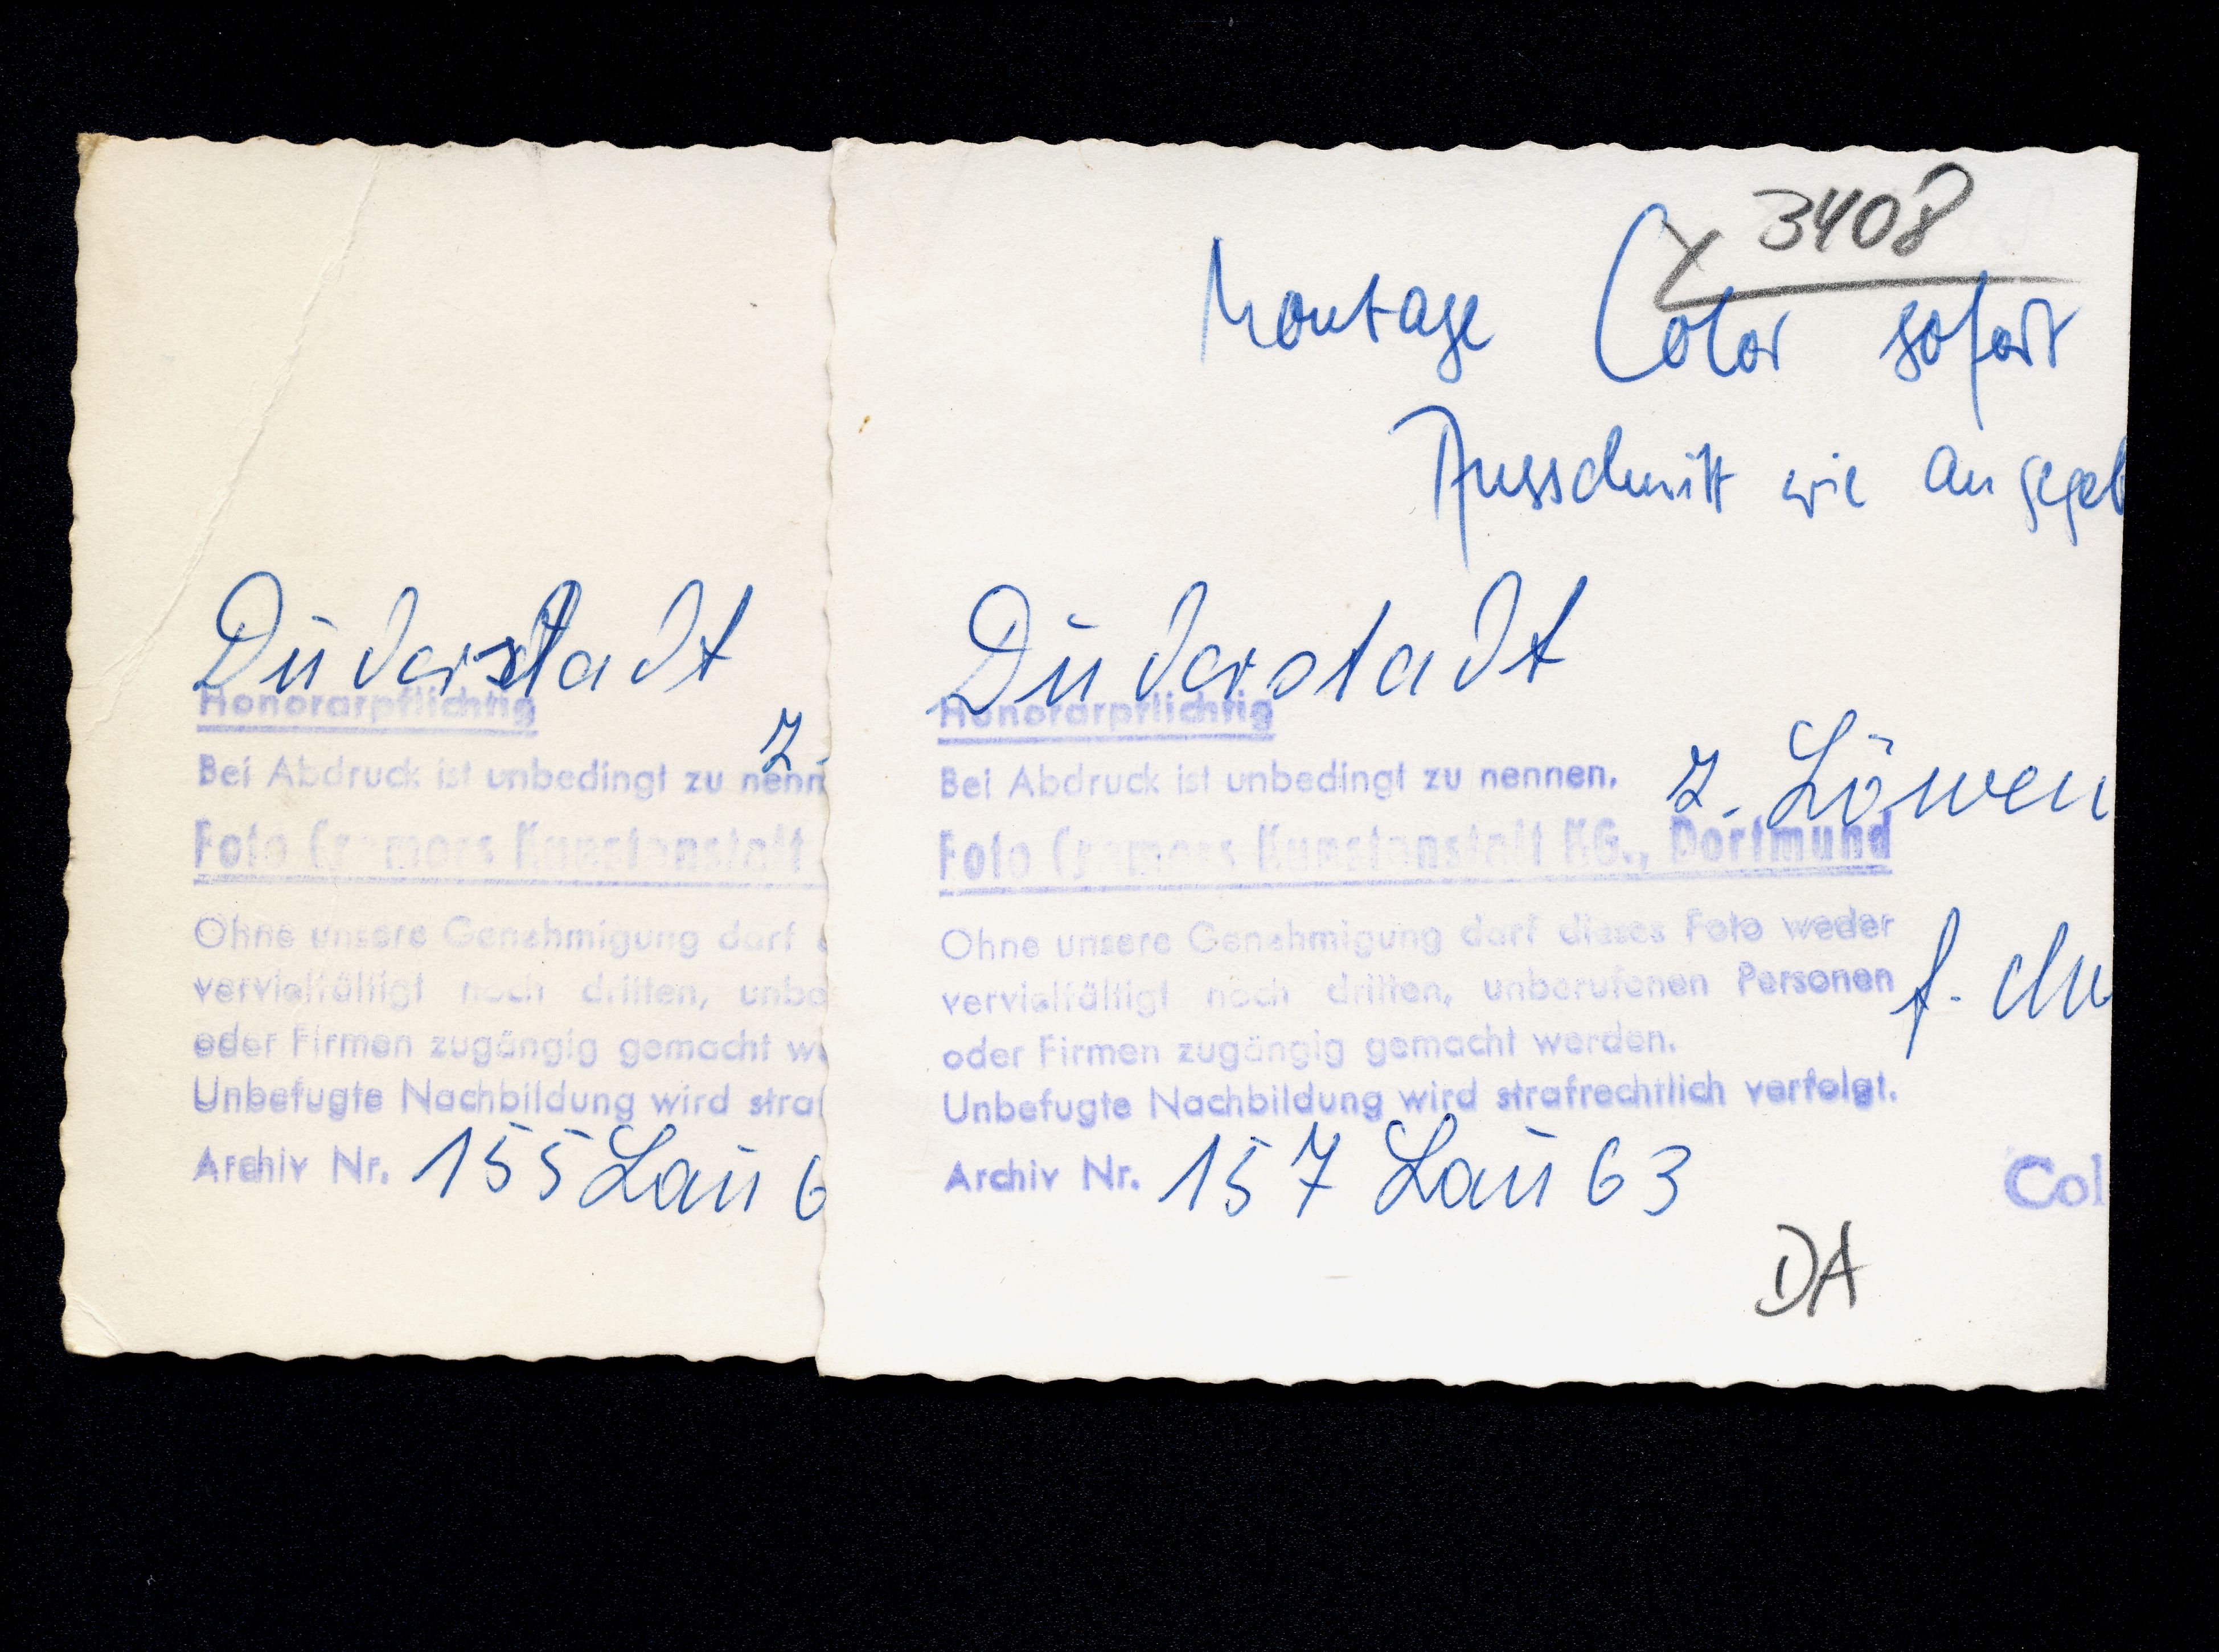 Duderstadt
Honorarpflichtig
z.
Bei Abdruck ist unbedingt zu nenn
Foto Cramers Kunstanstalt
Ohne unsere Genehmigung darf
vervielfältigt noch dritten, unbe
oder Firmen zugängig gemacht we
Unbefugte Nachbildung wird straf
Archiv Nr. 155 Lau 6
3408
Montage Color sofort
Ausschnitt wie angegeb
Duderstadt
Honorarpflichtig
Bei Abdruck ist unbedingt zu nennen.
z. Löwen
Foto Cramers Kunstanstalt KG., Dortmund
Ohne unsere Genehmigung darf dieses Foto weder
vervielfältigt noch dritten, unberufenen Personen
f.
oder Firmen zugängig gemacht werden.
Unbefugte Nachbildung wird strafrechtlich verfolgt.
Archiv Nr. 157 Lau 63
Col
DA